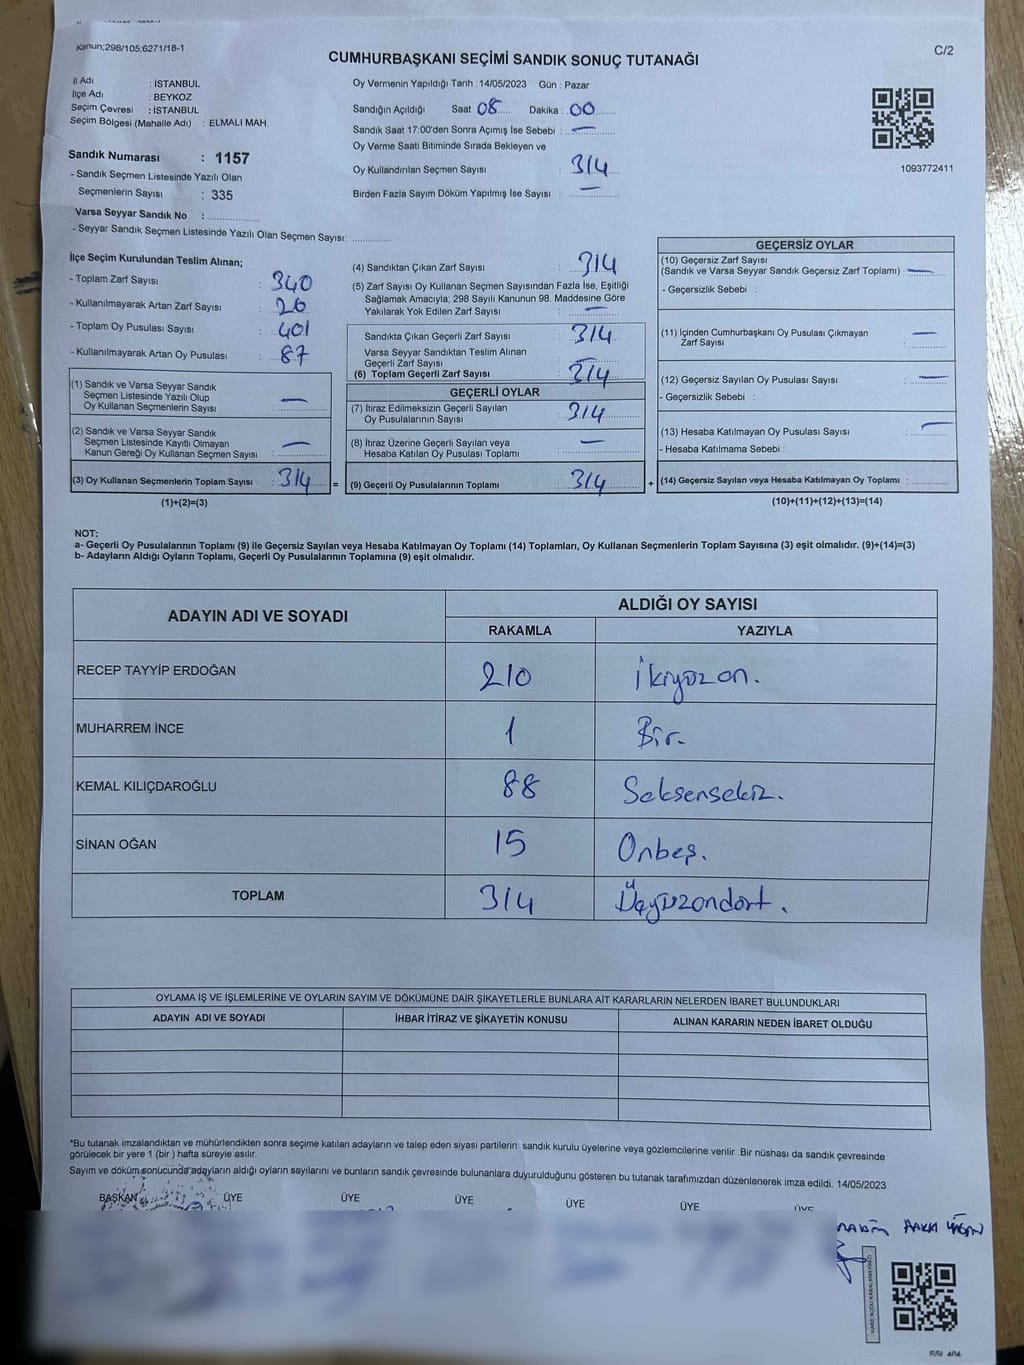 Kanun;298/105;6271/18-1
C/2
CUMHURBAŞKANI SEÇİMİ SANDIK SONUÇ TUTANAĞI
İl Adı : İSTANBUL
İlçe Adı : BEYKOZ
Seçim Çevresi : İSTANBUL
Seçim Bölgesi (Mahalle Adı) : ELMALI MAH.
Sandık Numarası : 1157
- Sandık Seçmen Listesinde Yazılı Olan
Seçmenlerin Sayısı : 335
Varsa Seyyar Sandık No :
- Seyyar Sandık Seçmen Listesinde Yazılı Olan Seçmen Sayısı:
Oy Vermenin Yapıldığı Tarih : 14/05/2023 Gün : Pazar
Sandığın Açıldığı Saat 08 Dakika : 00
Sandık Saat 17:00'den Sonra Açımış İse Sebebi : —
Oy Verme Saati Bitiminde Sırada Bekleyen ve
Oy Kullandırılan Seçmen Sayısı : 314
Birden Fazla Sayım Döküm Yapılmış İse Sayısı : —
1093772411
İlçe Seçim Kurulundan Teslim Alınan;
- Toplam Zarf Sayısı : 340
- Kullanılmayarak Artan Zarf Sayısı : 26
- Toplam Oy Pusulası Sayısı : 401
- Kullanılmayarak Artan Oy Pusulası : 87
(1) Sandık ve Varsa Seyyar Sandık
Seçmen Listesinde Yazılı Olup
Oy Kullanan Seçmenlerin Sayısı : —
(2) Sandık ve Varsa Seyyar Sandık
Seçmen Listesinde Kayıtlı Olmayan
Kanun Gereği Oy Kullanan Seçmen Sayısı : —
(3) Oy Kullanan Seçmenlerin Toplam Sayısı : 314 =
(1)+(2)=(3)
(4) Sandıktan Çıkan Zarf Sayısı : 314
(5) Zarf Sayısı Oy Kullanan Seçmen Sayısından Fazla İse, Eşitliği
Sağlamak Amacıyla, 298 Sayılı Kanunun 98. Maddesine Göre
Yakılarak Yok Edilen Zarf Sayısı : —
Sandıkta Çıkan Geçerli Zarf Sayısı : 314
Varsa Seyyar Sandıktan Teslim Alınan
Geçerli Zarf Sayısı : —
(6) Toplam Geçerli Zarf Sayısı : 314
GEÇERLİ OYLAR
(7) İtiraz Edilmeksizin Geçerli Sayılan
Oy Pusulalarının Sayısı : 314
(8) İtiraz Üzerine Geçerli Sayılan veya
Hesaba Katılan Oy Pusulası Toplamı : —
(9) Geçerli Oy Pusulalarının Toplamı : 314 +
GEÇERSİZ OYLAR
(10) Geçersiz Zarf Sayısı
(Sandık ve Varsa Seyyar Sandık Geçersiz Zarf Toplamı) : —
- Geçersizlik Sebebi :
(11) İçinden Cumhurbaşkanı Oy Pusulası Çıkmayan
Zarf Sayısı : —
(12) Geçersiz Sayılan Oy Pusulası Sayısı : —
- Geçersizlik Sebebi :
(13) Hesaba Katılmayan Oy Pusulası Sayısı : —
- Hesaba Katılmama Sebebi :
(14) Geçersiz Sayılan veya Hesaba Katılmayan Oy Toplamı :
(10)+(11)+(12)+(13)=(14)
NOT:
a- Geçerli Oy Pusulalarının Toplamı (9) ile Geçersiz Sayılan veya Hesaba Katılmayan Oy Toplamı (14) Toplamları, Oy Kullanan Seçmenlerin Toplam Sayısına (3) eşit olmalıdır. (9)+(14)=(3)
b- Adayların Aldığı Oyların Toplamı, Geçerli Oy Pusulalarının Toplamına (9) eşit olmalıdır.
ADAYIN ADI VE SOYADI ALDIĞI OY SAYISI
RAKAMLA YAZIYLA
RECEP TAYYİP ERDOĞAN 210 İkiyüzon.
MUHARREM İNCE 1 Bir.
KEMAL KILIÇDAROĞLU 88 Seksensekiz.
SİNAN OĞAN 15 Onbeş.
TOPLAM 314 Üçyüzondört.
OYLAMA İŞ VE İŞLEMLERİNE VE OYLARIN SAYIM VE DÖKÜMÜNE DAİR ŞİKAYETLERLE BUNLARA AİT KARARLARIN NELERDEN İBARET BULUNDUKLARI
ADAYIN ADI VE SOYADI İHBAR İTİRAZ VE ŞİKAYETİN KONUSU ALINAN KARARIN NEDEN İBARET OLDUĞU
*Bu tutanak imzalandıktan ve mühürlendikten sonra seçime katılan adayların ve talep eden siyasi partilerin sandık kurulu üyelerine veya gözlemcilerine verilir .Bir nüshası da sandık çevresinde
görülecek bir yere 1 (bir ) hafta süreyle asılır.
Sayım ve döküm sonucunda adayların aldığı oyların sayılarını ve bunların sandık çevresinde bulunanlara duyurulduğunu gösteren bu tutanak tarafımızdan düzenlenerek imza edildi. 14/05/2023
BAŞKAN ÜYE ÜYE ÜYE ÜYE ÜYE ÜYE
HAKKI